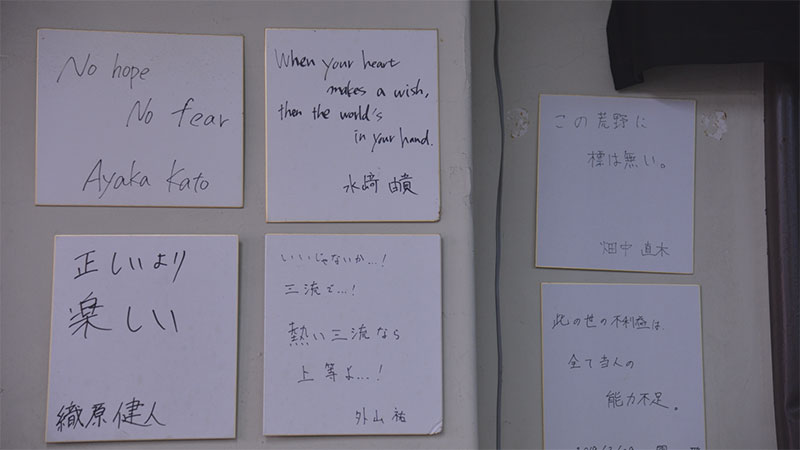 No hope
No fear
Ayaka Kato
When your heart
makes a wish,
then the world's
in your hand.
水﨑 由貴
正しいより
楽しい
織原健人
いいじゃないか…!
三流で…!
熱い三流なら
上等よ…!
外山 祐
この荒野に
標は無い。
畑中 直木
此の世の不利益は
全て当人の
能力不足。